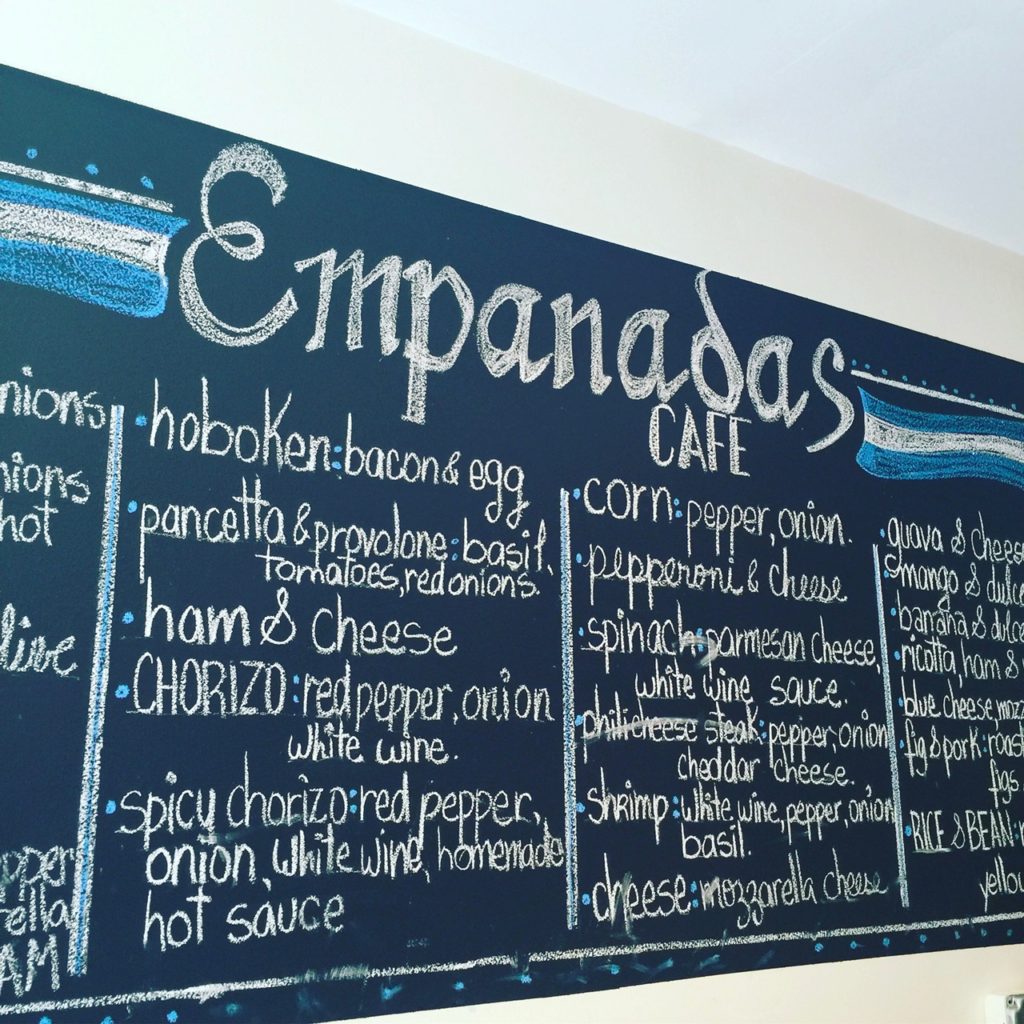 Empanadas
CAFE
nions
nions
hot
live
AM
hoboken: bacon & egg
pancetta & provolone: basil,
tomatoes, red onions.
ham & cheese
CHORIZO: red pepper, onion
white wine.
spicy chorizo: red pepper,
onion, white wine, homemade
hot sauce
corn: pepper, onion.
pepperoni & cheese
spinach: parmesan cheese,
white wine sauce.
phili cheese steak: pepper, onion
cheddar cheese.
shrimp: white wine, pepper, onion
basil.
cheese: mozzarella cheese
guava & chees
mango & dulce
banana & dulce
ricotta, ham &
blue cheese, mozz
fig & pork: roast
figs
RICE & BEAN:
yellow